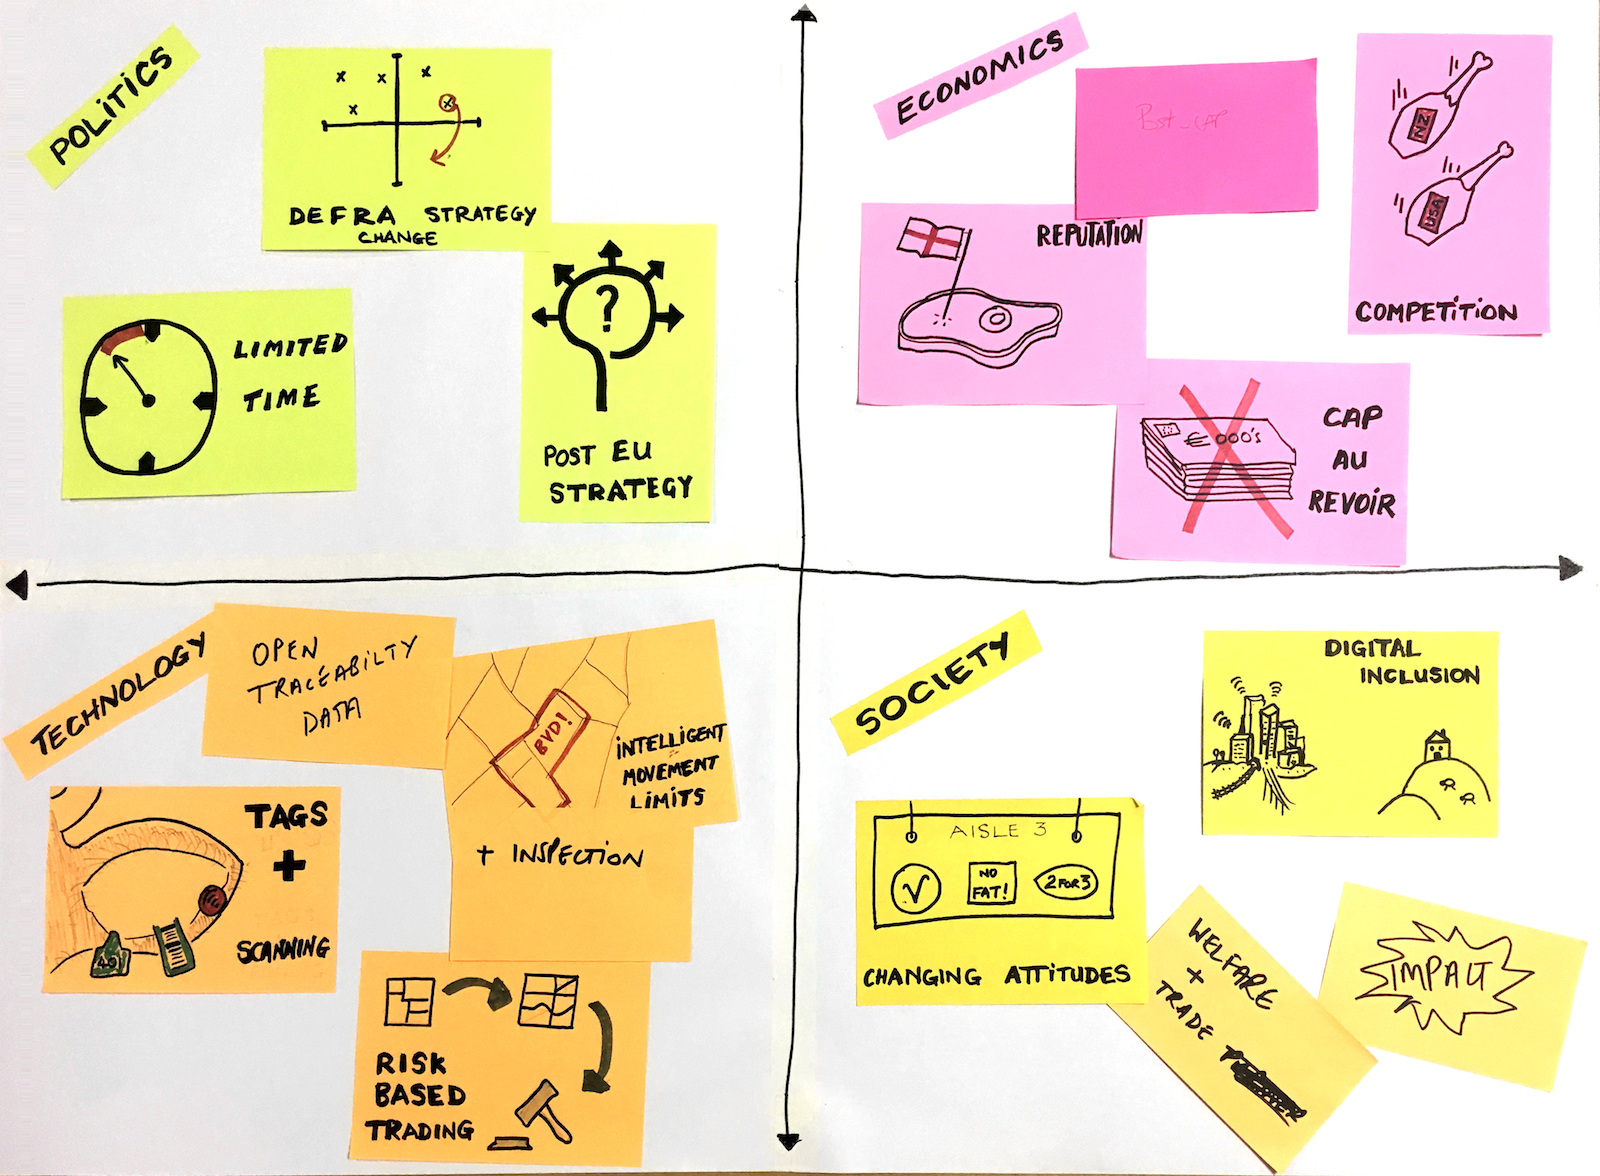 POLITICS
DEFRA STRATEGY
CHANGE
LIMITED
TIME
?
POST EU
STRATEGY
ECONOMICS
NZ
USA
COMPETITION
REPUTATION
€ 000's
CAP
AU
REVOIR
TECHNOLOGY
OPEN
TRACEABILTY
DATA
BVD!
INTELLIGENT
MOVEMENT
LIMITS
+ INSPECTION
TAGS
+
SCANNING
RISK
BASED
TRADING
SOCIETY
DIGITAL
INCLUSION
AISLE 3
NO
FAT!
2 FOR 3
CHANGING ATTITUDES
WELFARE
+
TRADE
IMPACT